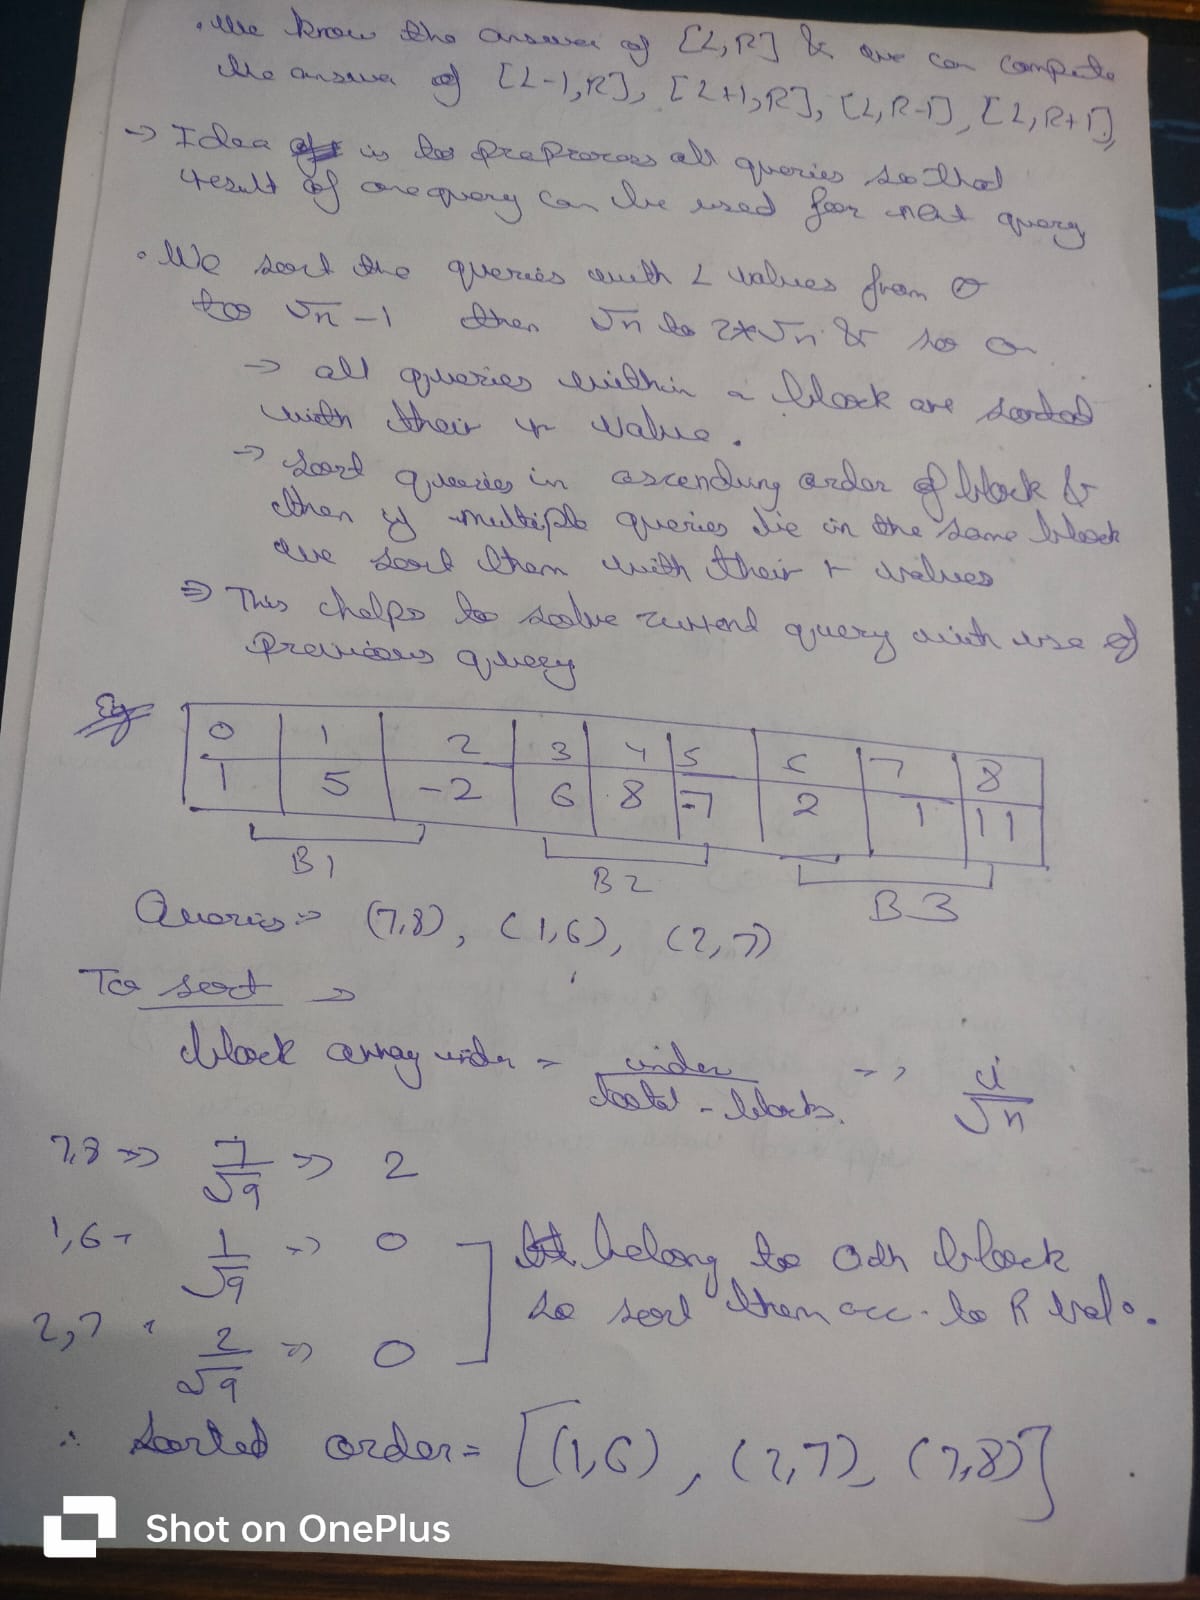 • We know the answer of [L,R] & we can compute
the answer of [L-1,R], [L+1,R], [L,R-1], [L,R+1],
→ Idea is to preprocess all queries so that
result of one query can be used for next query
• We sort the queries with L values from 0
to √n -1 then √n to 2*√n & so on
→ all queries within a block are sorted
with their r value.
→ Sort queries in ascending order of block &
then if multiple queries lie in the same block
we sort them with their r values
⇒ This helps to solve current query with use of
previous query
Eg
0 1 2 3 4 5 6 7 8
1 5 -2 6 8 -7 2 1 11
B1 B2 B3
Queries ⇒ (7,8), (1,6), (2,7)
To sort →
block array index = index / total-blocks. => i / √n
7,8 => 7/√9 => 2
1,6 → 1/√9 => 0
belong to 0th block
2,7 2/√9 => 0
so sort them acc. to R val.
∴ Sorted order = [(1,6), (2,7), (7,8)]
Shot on OnePlus